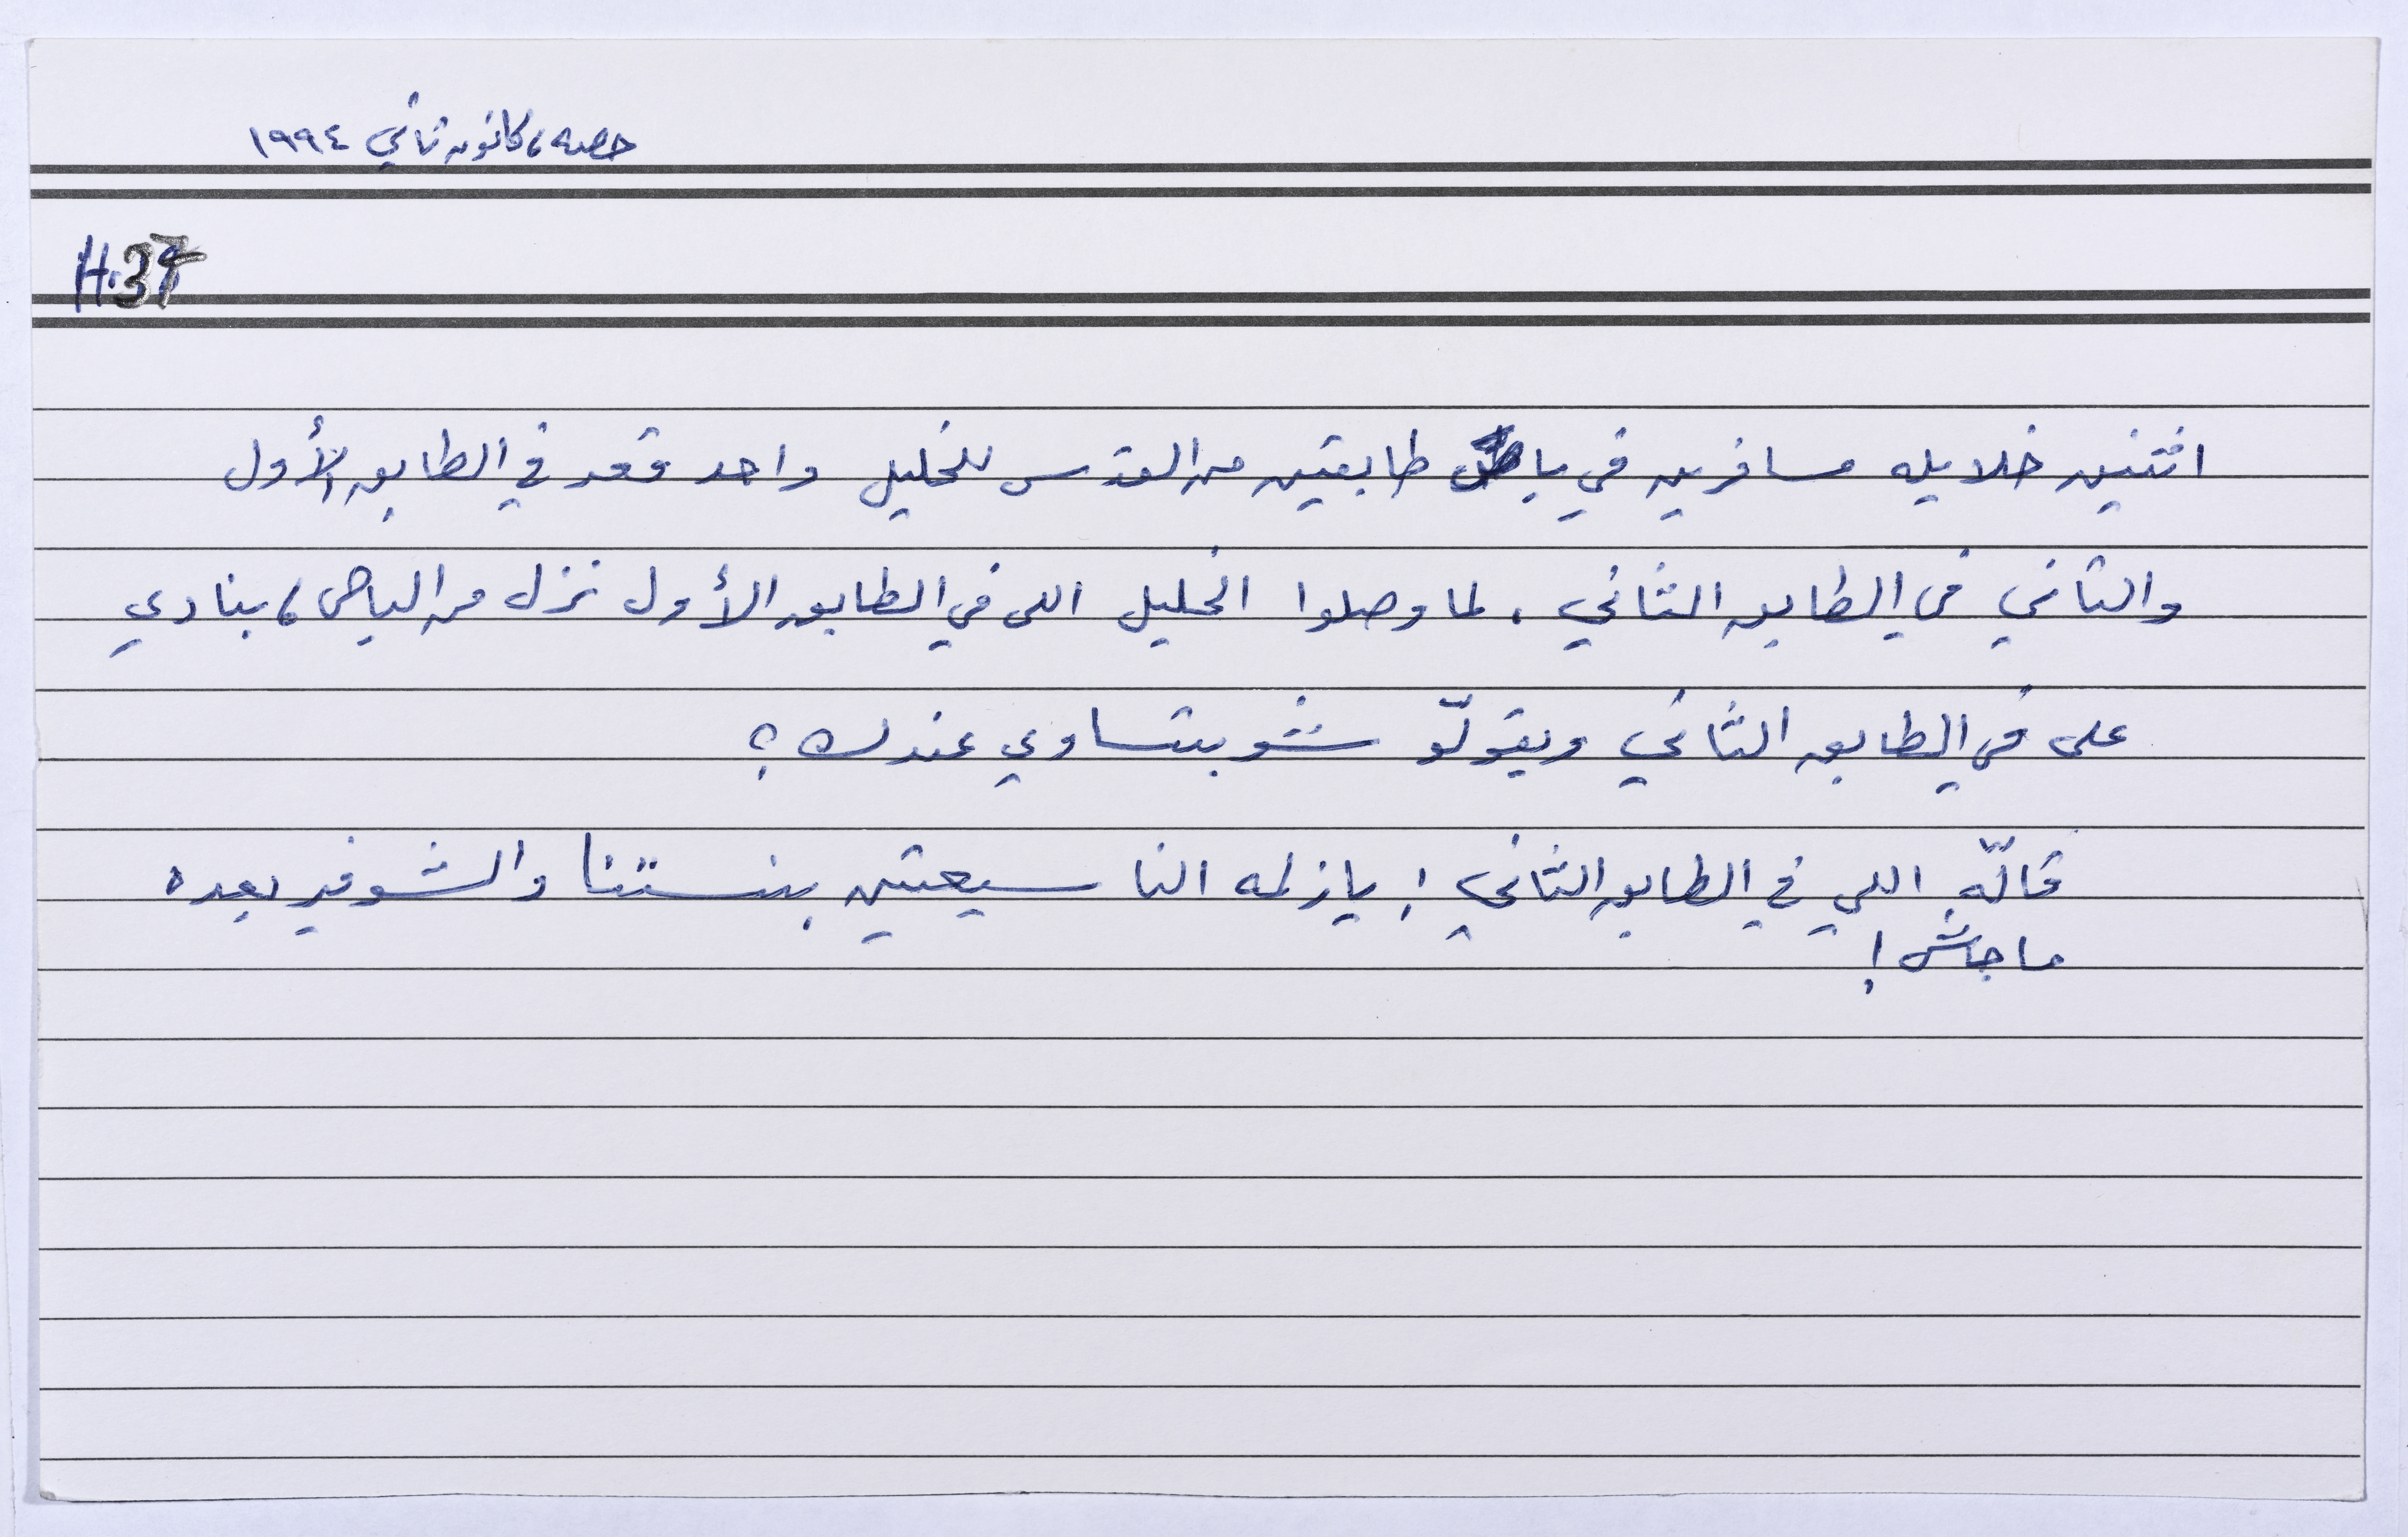 حصه، كانون ثاني ١٩٩٤
H.37
اثنين خلايله مسافرين في باص طابقين من القدس للخليل واحد قعد في الطابق الأول
والثاني في الطابق الثاني. لما وصلوا الخليل اللي في الطابق الأول نزل من الباص، بنادي
على في الطابق الثاني ويقولّو شو بتساوي عندك؟
قالّه اللي في الطابق الثاني! يا زلمه النا سيعتين بنستنا والشوفير بعده
ما جاش!